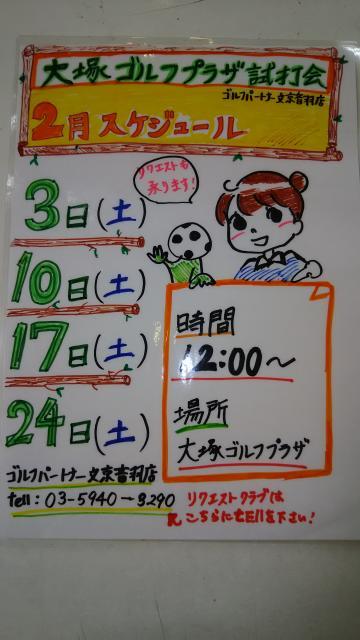 大塚ゴルフプラザ試打会
ゴルフパートナー文京音羽店
2月スケジュール
リクエストも
承ります!
3日(土)
10日(土)
17日(土)
24日(土)
時間
12:00～
場所
大塚ゴルフプラザ
ゴルフパートナー文京音羽店
tell:03-5940-3290
リクエストクラブは
こちらにtEllを下さい!